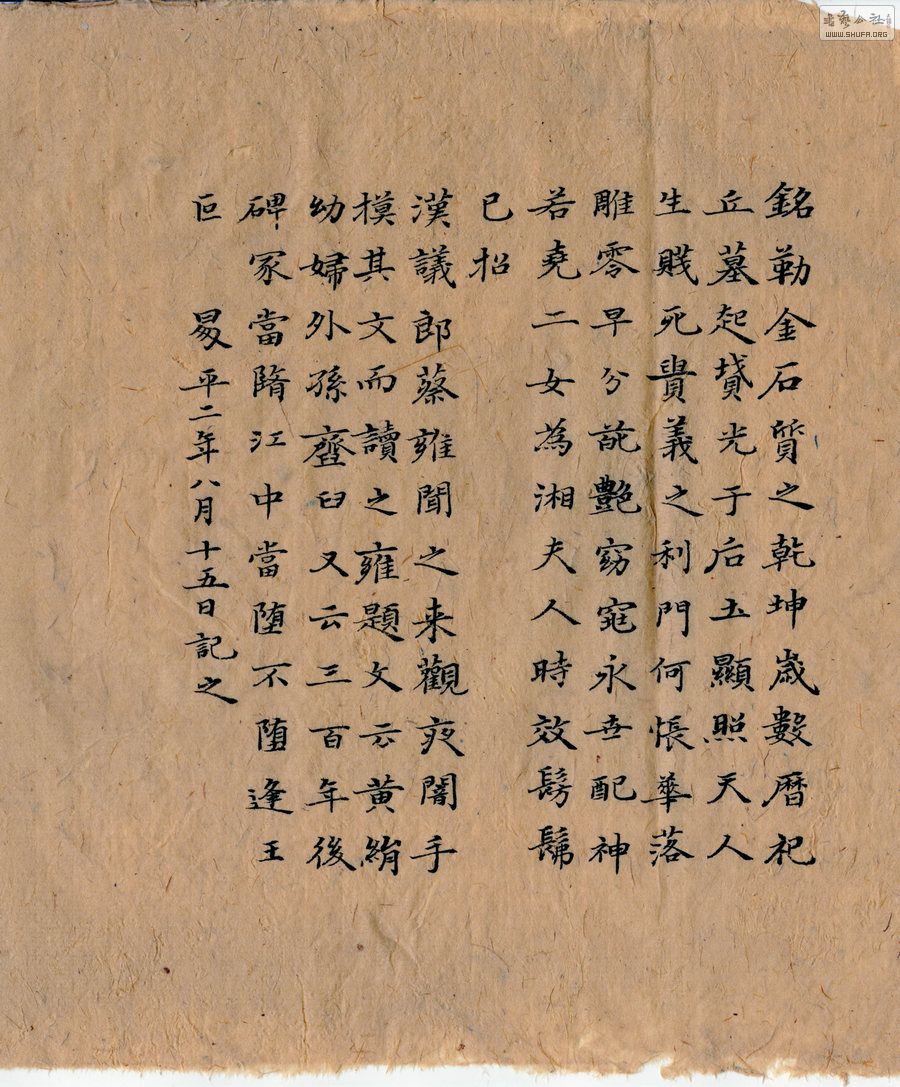 銘勒金石質之乾坤歲數曆祀
丘墓起墳光于后土顯照天人
生賤死貴義之利門何悵華落
雕零早分葩艷窈窕永世配神
若堯二女為湘夫人時效髣髴
已招
漢議郎蔡雍聞之来觀夜闇手
摸其文而讀之雍題文云黄絹
幼婦外孫齏臼又云三百年後
碑冢當隋江中當堕不堕逢王
叵 平二年八月十五日記之
WWW.SHUFA.ORG